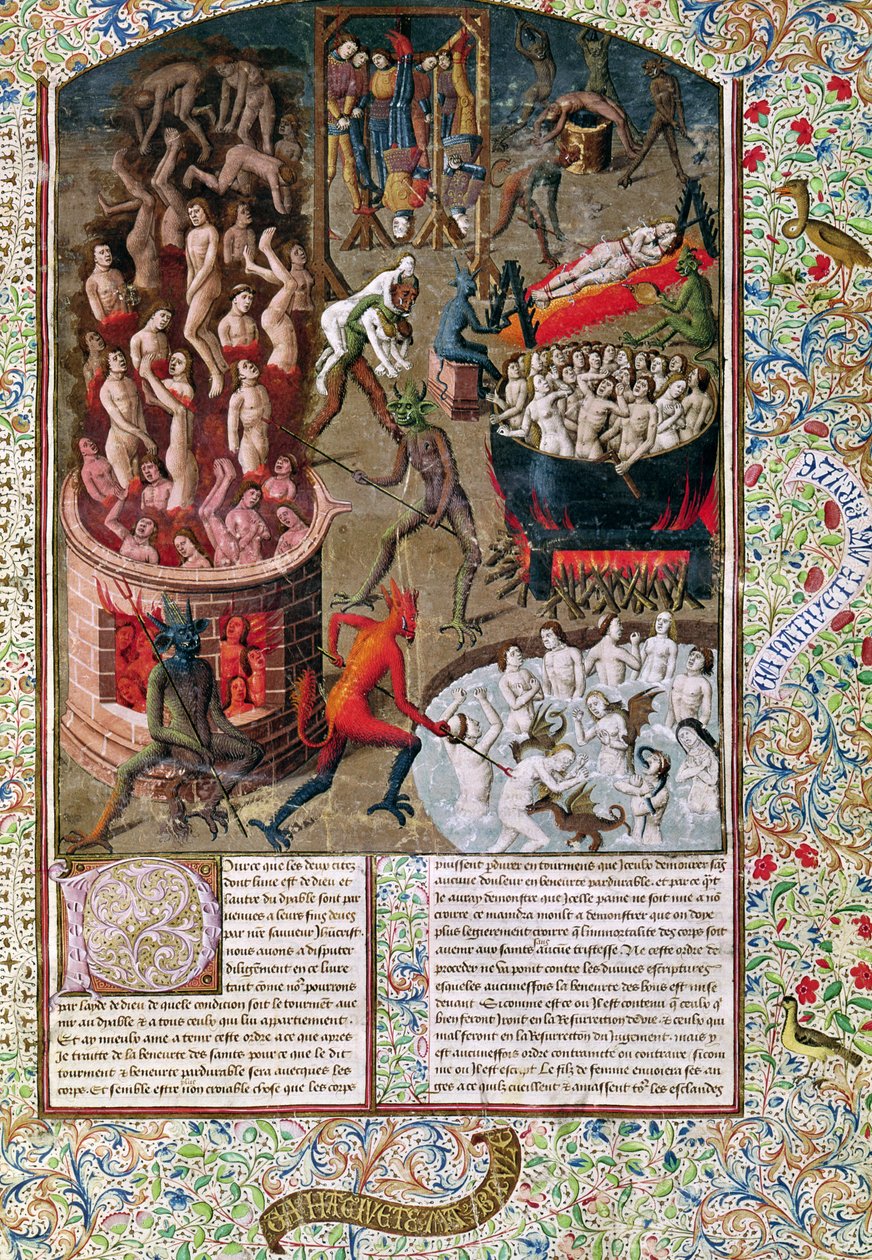 Pource que les deux citez
dont lune est de dieu et
lautre du dyable sont par
venues a leurs fins deues
par nr̃e sauueur Jhũcrist.
nous auons a disputer
diligem̃ent en ce liure
tant cõme noꝰ pourrons
par layde de dieu de quele condition soit le tourmẽt aue
nir au dyable & a tous ceulx qui lui appartiennent.
Et ay mieulx ame a tenir ceste ordre a ce que apres
Je traitte de la beneurte des sains pour ce que le dit
tourment & beneurte pardurable sera auecques les
corps. Et semble estre plus non croiable chose que les corps
puissent pardurer en tourmens que Jceulx demourer sãs
aucune douleur en beneurte pardurable. et par ce qñt
Je auray demonstre que Jcelle paine ne soit mie a nõ
croire ce maindra moult a demonstrer que on doye
plus legierement croire que limmortalite des corps soit
auenir aux sains sans aucune tristesse. Ne ceste ordre de
proceder ne va point contre les diuines escriptures
esqueles aucunesfois la beneurte des bons est mise
deuant Si comme est ce ou Jl est contenu que ceulx qͥ
bien feront Jront en la Resurrection de vie & ceulx qui
mal feront en la Resurrection du Jugement. mais y
est aucunesfois ordre contraincte ou contraire si com
me ou Jl est escript Le filz de femme enuoiera ses an
ges a ce quilz cueillent & amassent toꝰ les esclandes